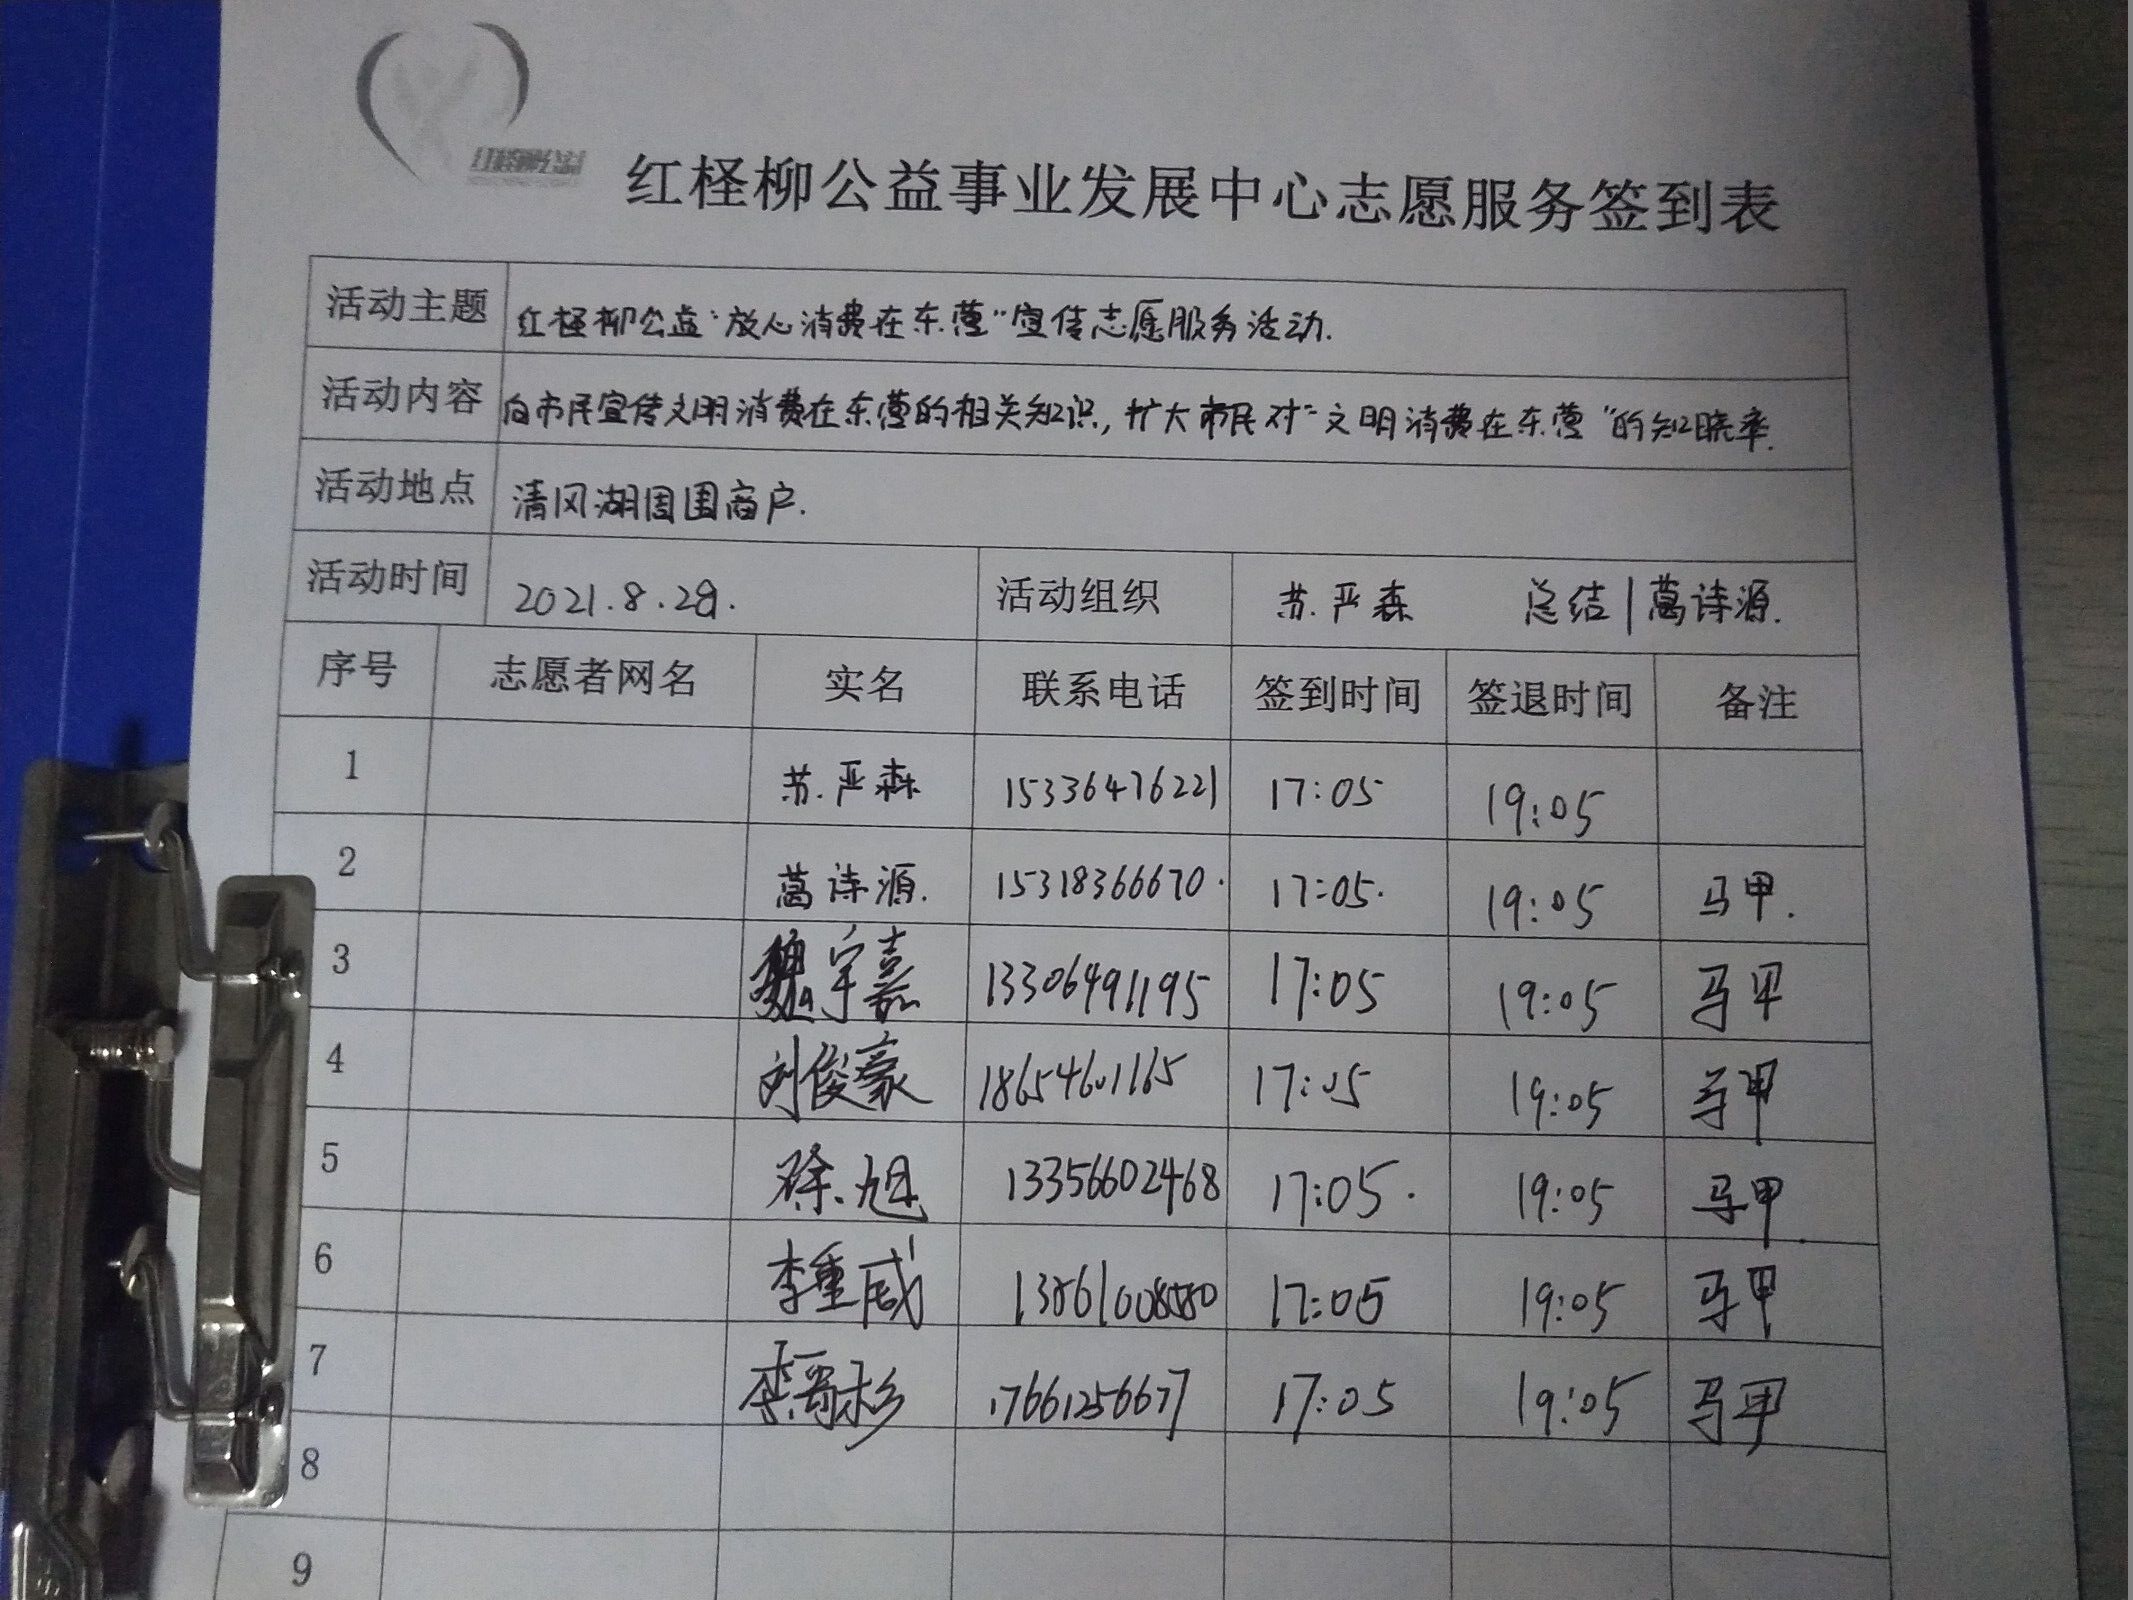 红柽柳公益
红柽柳公益事业发展中心志愿服务签到表
活动主题 红柽柳公益“放心消费在东营”宣传志愿服务活动.
活动内容 向市民宣传文明消费在东营的相关知识,扩大市民对“文明消费在东营”的知晓率.
活动地点 清风湖周围商户.
活动时间 2021.8.28. 活动组织 苏严森 总结|葛诗源.
序号 志愿者网名 实名 联系电话 签到时间 签退时间 备注
1 苏严森 15336476221 17:05 19:05
2 葛诗源. 15318366670. 17:05. 19:05 马甲.
3 魏宇嘉 13306491195 17:05 19:05 马甲
4 刘俊豪 18654601165 17:05 19:05 马甲
5 徐旭 13356602468 17:05. 19:05 马甲.
6 李重威 17:05 19:05 马甲
7 17661256677 17:05 19:05 马甲
8
9